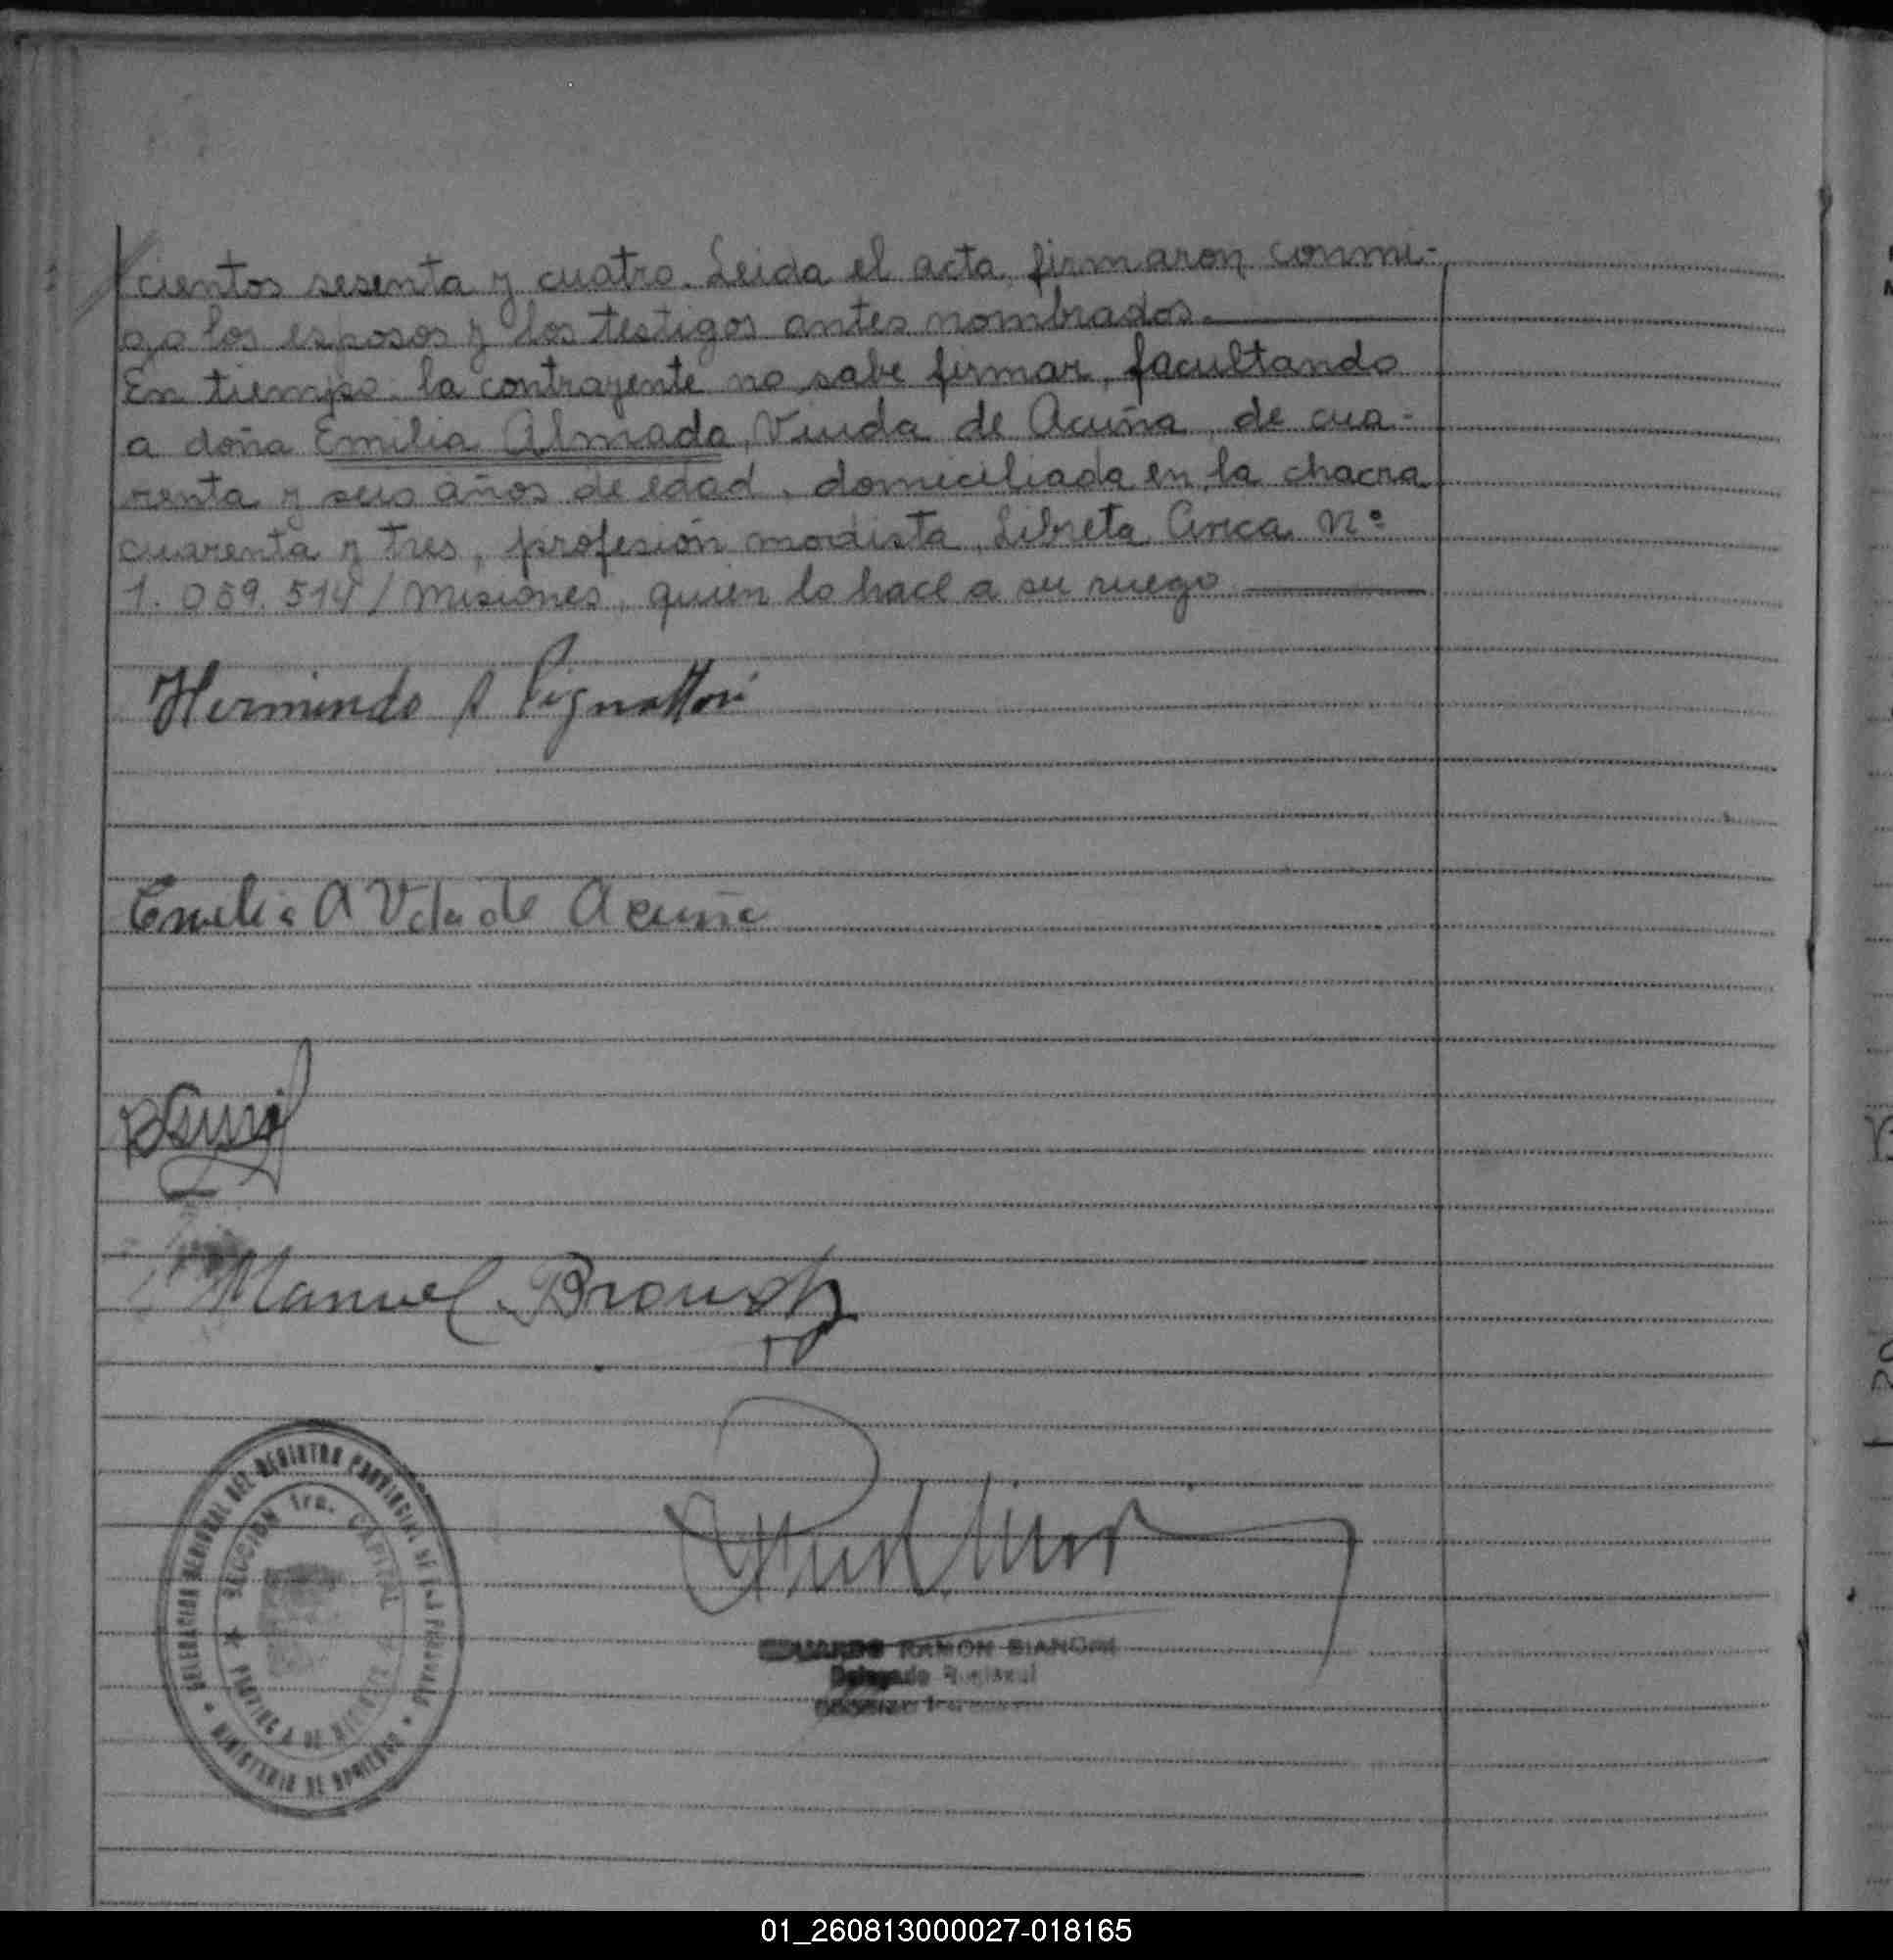 cientos sesenta y cuatro. Leida el acta, firmaron conmi-
go los esposos y los testigos antes nombrados.
En tiempo: la contrayente no sabe firmar, facultando
a doña Emilia Almada, Viuda de Acuña, de cua-
renta y seis años de edad, domiciliada en la chacra
cuarenta y tres, profesión modista, Libreta Cívica Nº
1.059.514/Misiones, quien lo hace a su ruego
Hermindo A Pignattori
Emilia A Vda de Acuña
Manuel
DELEGACION REGIONAL DEL REGISTRO PROVINCIAL DE LAS PERSONAS
SECCION 1ra. CAPITAL
MINISTERIO DE
EDUARDO RAMON BIANCHI
Delegado Regional
01_260813000027-018165